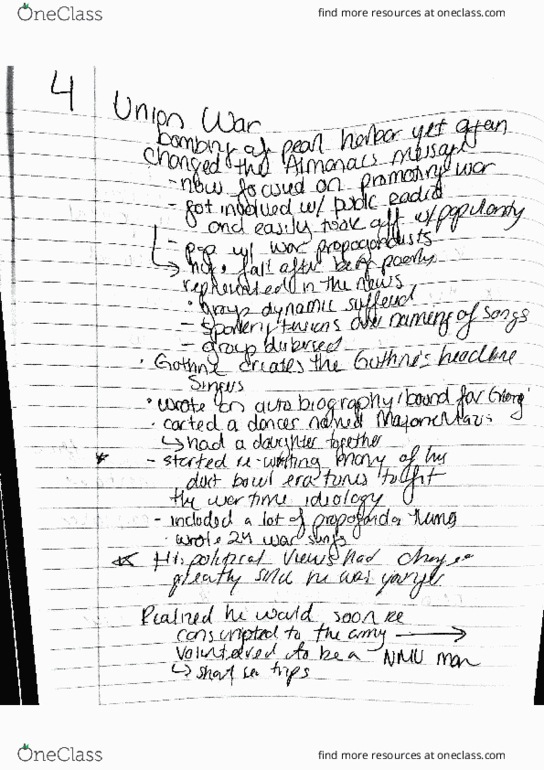 OneClass
find more resources at oneclass.com
4
Union War
bombing of pearl harbor yet again
changed the Almanacs message
- now focused on promoting war
- got involved w/ public radio
and easily took off w/ popularity
- pop w/ war propogandists
→ huge fall after being poorly
represented in the news
• group dynamic suffered
- tensions over naming of songs
- group disbursed
• Guthrie creates the Guthrie's headline
Singers
• wrote an auto biography 'bound for Glory'
• a dancer named Mazia
↳ had a daughter together
* - started re-writing many of his
dust bowl era tunes to fit
the war time ideology
- included a lot of propoganda
• wrote 24 war songs
* His political views had
greatly since he was
Realized he would soon be
conscripted to the army →
volunteered to be a NMU man
↳ short sea trips
OneClass
find more resources at oneclass.com